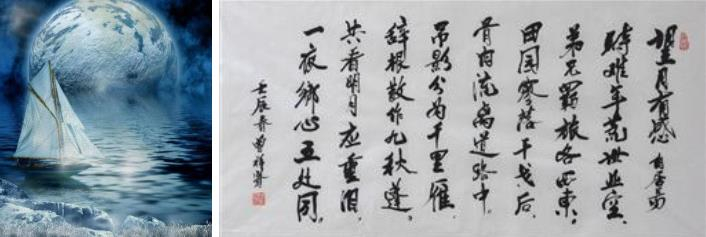 望月有感 白居易
時难年荒世业空,
弟兄羁旅各西東;
田园寥落干戈后,
骨肉流离道路中.
吊影分为千里雁,
辞根散作九秋蓬。
共看明月应垂泪,
一夜乡心五处同.
壬辰春曾祥